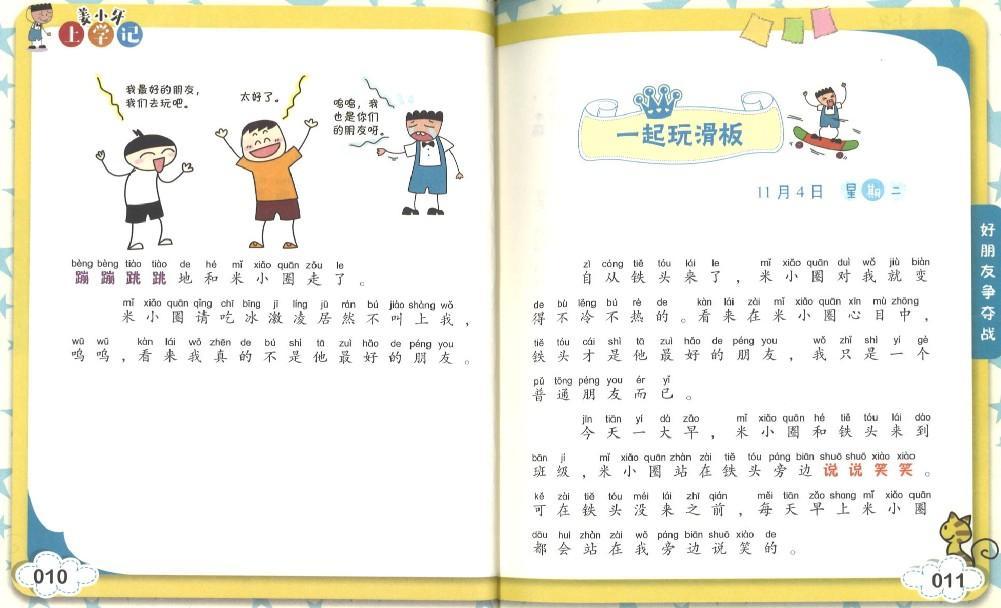 姜小牙
上学记
我最好的朋友，
我们去玩吧。
太好了。
呜呜，我
也是你们
的朋友呀。
bèng bèng tiào tiào de hé mǐ xiǎo quān zǒu le
蹦蹦跳跳地和米小圈走了。
mǐ xiǎo quān qǐng chī bīng jī líng jū rán bú jiào shàng wǒ
米小圈请吃冰激凌居然不叫上我，
wū wū kàn lái wǒ zhēn de bú shì tā zuì hǎo de péng you
呜呜，看来我真的不是他最好的朋友。
010
一起玩滑板
11月4日 星期二
zì cóng tiě tóu lái le mǐ xiǎo quān duì wǒ jiù biàn
自从铁头来了，米小圈对我就变
de bù lěng bú rè de kàn lái zài mǐ xiǎo quān xīn mù zhōng
得不冷不热的。看来在米小圈心目中，
tiě tóu cái shì tā zuì hǎo de péng you wǒ zhǐ shì yí gè
铁头才是他最好的朋友，我只是一个
pǔ tōng péng you ér yǐ
普通朋友而已。
jīn tiān yí dà zǎo mǐ xiǎo quān hé tiě tóu lái dào
今天一大早，米小圈和铁头来到
bān jí mǐ xiǎo quān zhàn zài tiě tóu páng biān shuō shuō xiào xiào
班级，米小圈站在铁头旁边说说笑笑。
kě zài tiě tóu méi lái zhī qián měi tiān zǎo shang mǐ xiǎo quān
可在铁头没来之前，每天早上米小圈
dōu huì zhàn zài wǒ páng biān shuō xiào de
都会站在我旁边说笑的。
好朋友争夺战
011